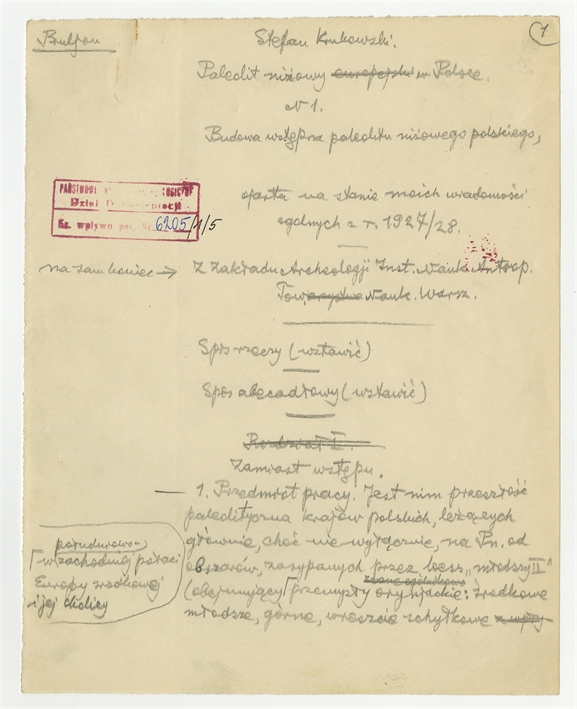 1
Bruljon
Stefan Krukowski.
Paleolit niżowy europejski w Polsce.
№ 1.
Budowa wstępna paleolitu niżowego polskiego,
PAŃSTWOWE
Dział Dokumentacji
Ks. wpływu poz. Nr. 6205/1/5
oparta na stanie moich wiadomości
ogólnych z r. 1927/28.
na sam koniec → Z Zakładu Archeologji Inst. Nauk Antrop.
Towarzystwa Nauk. Warsz.
Spis rzeczy (wstawić)
Spis abecadłowy (wstawić)
Rozdział I.
Zamiast wstępu.
1. Przedmiot pracy. Jest nim przeszłość
paleolityczna krajów polskich, leżących
głównie, choć nie wyłącznie, na Pn. od
obszarów, zasypanych przez less „młodszy II”
(obejmujący przemysły oryniackie: środkowe
młodsze, górne, wreszcie schyłkowe
południowo-
w zachodniej połaci
Europy środkowej
i jej okolicy